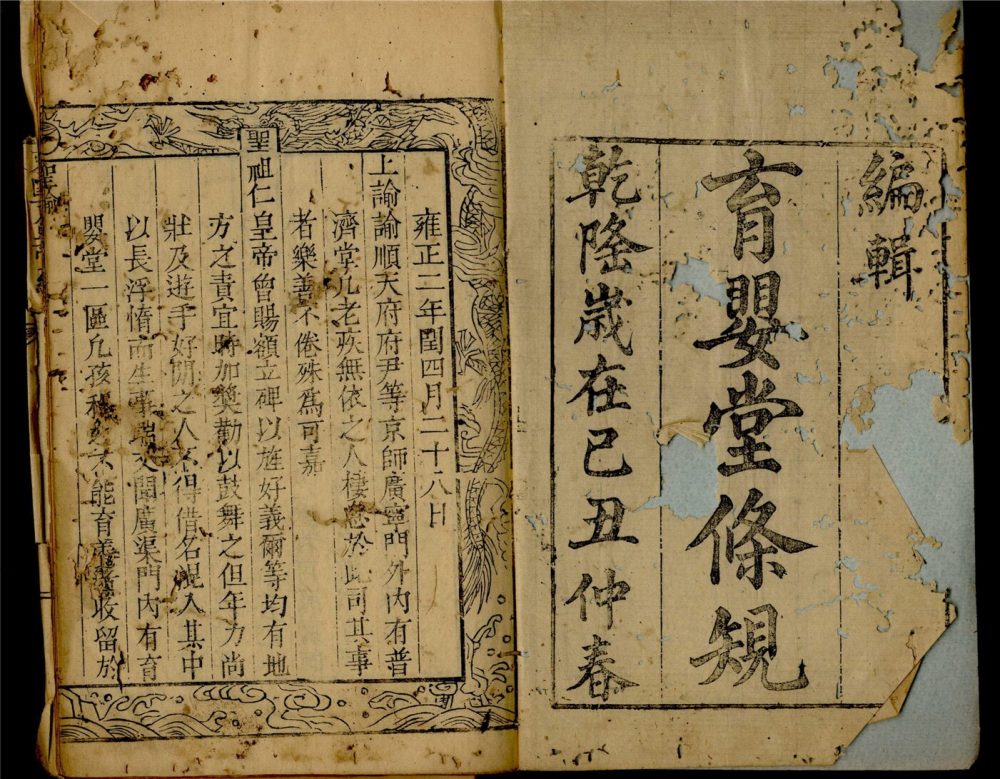 編輯
育嬰堂條規
乾隆歲在己丑仲春
雍正二年閏四月二十八日
上諭諭順天府府尹等京師廣寧門外內有普
濟堂凡老疾無依之人棲息於此司其事
者樂善不倦殊為可嘉
聖祖仁皇帝曾賜額立碑以旌好義爾等均有地
方之責宜時加獎勸以鼓舞之但年力尚
壯及遊手好閒之人不得借名混入其中
以長浮惰而生事端又聞廣渠門內有育
嬰堂一區凡孩稚不能育養者收留於